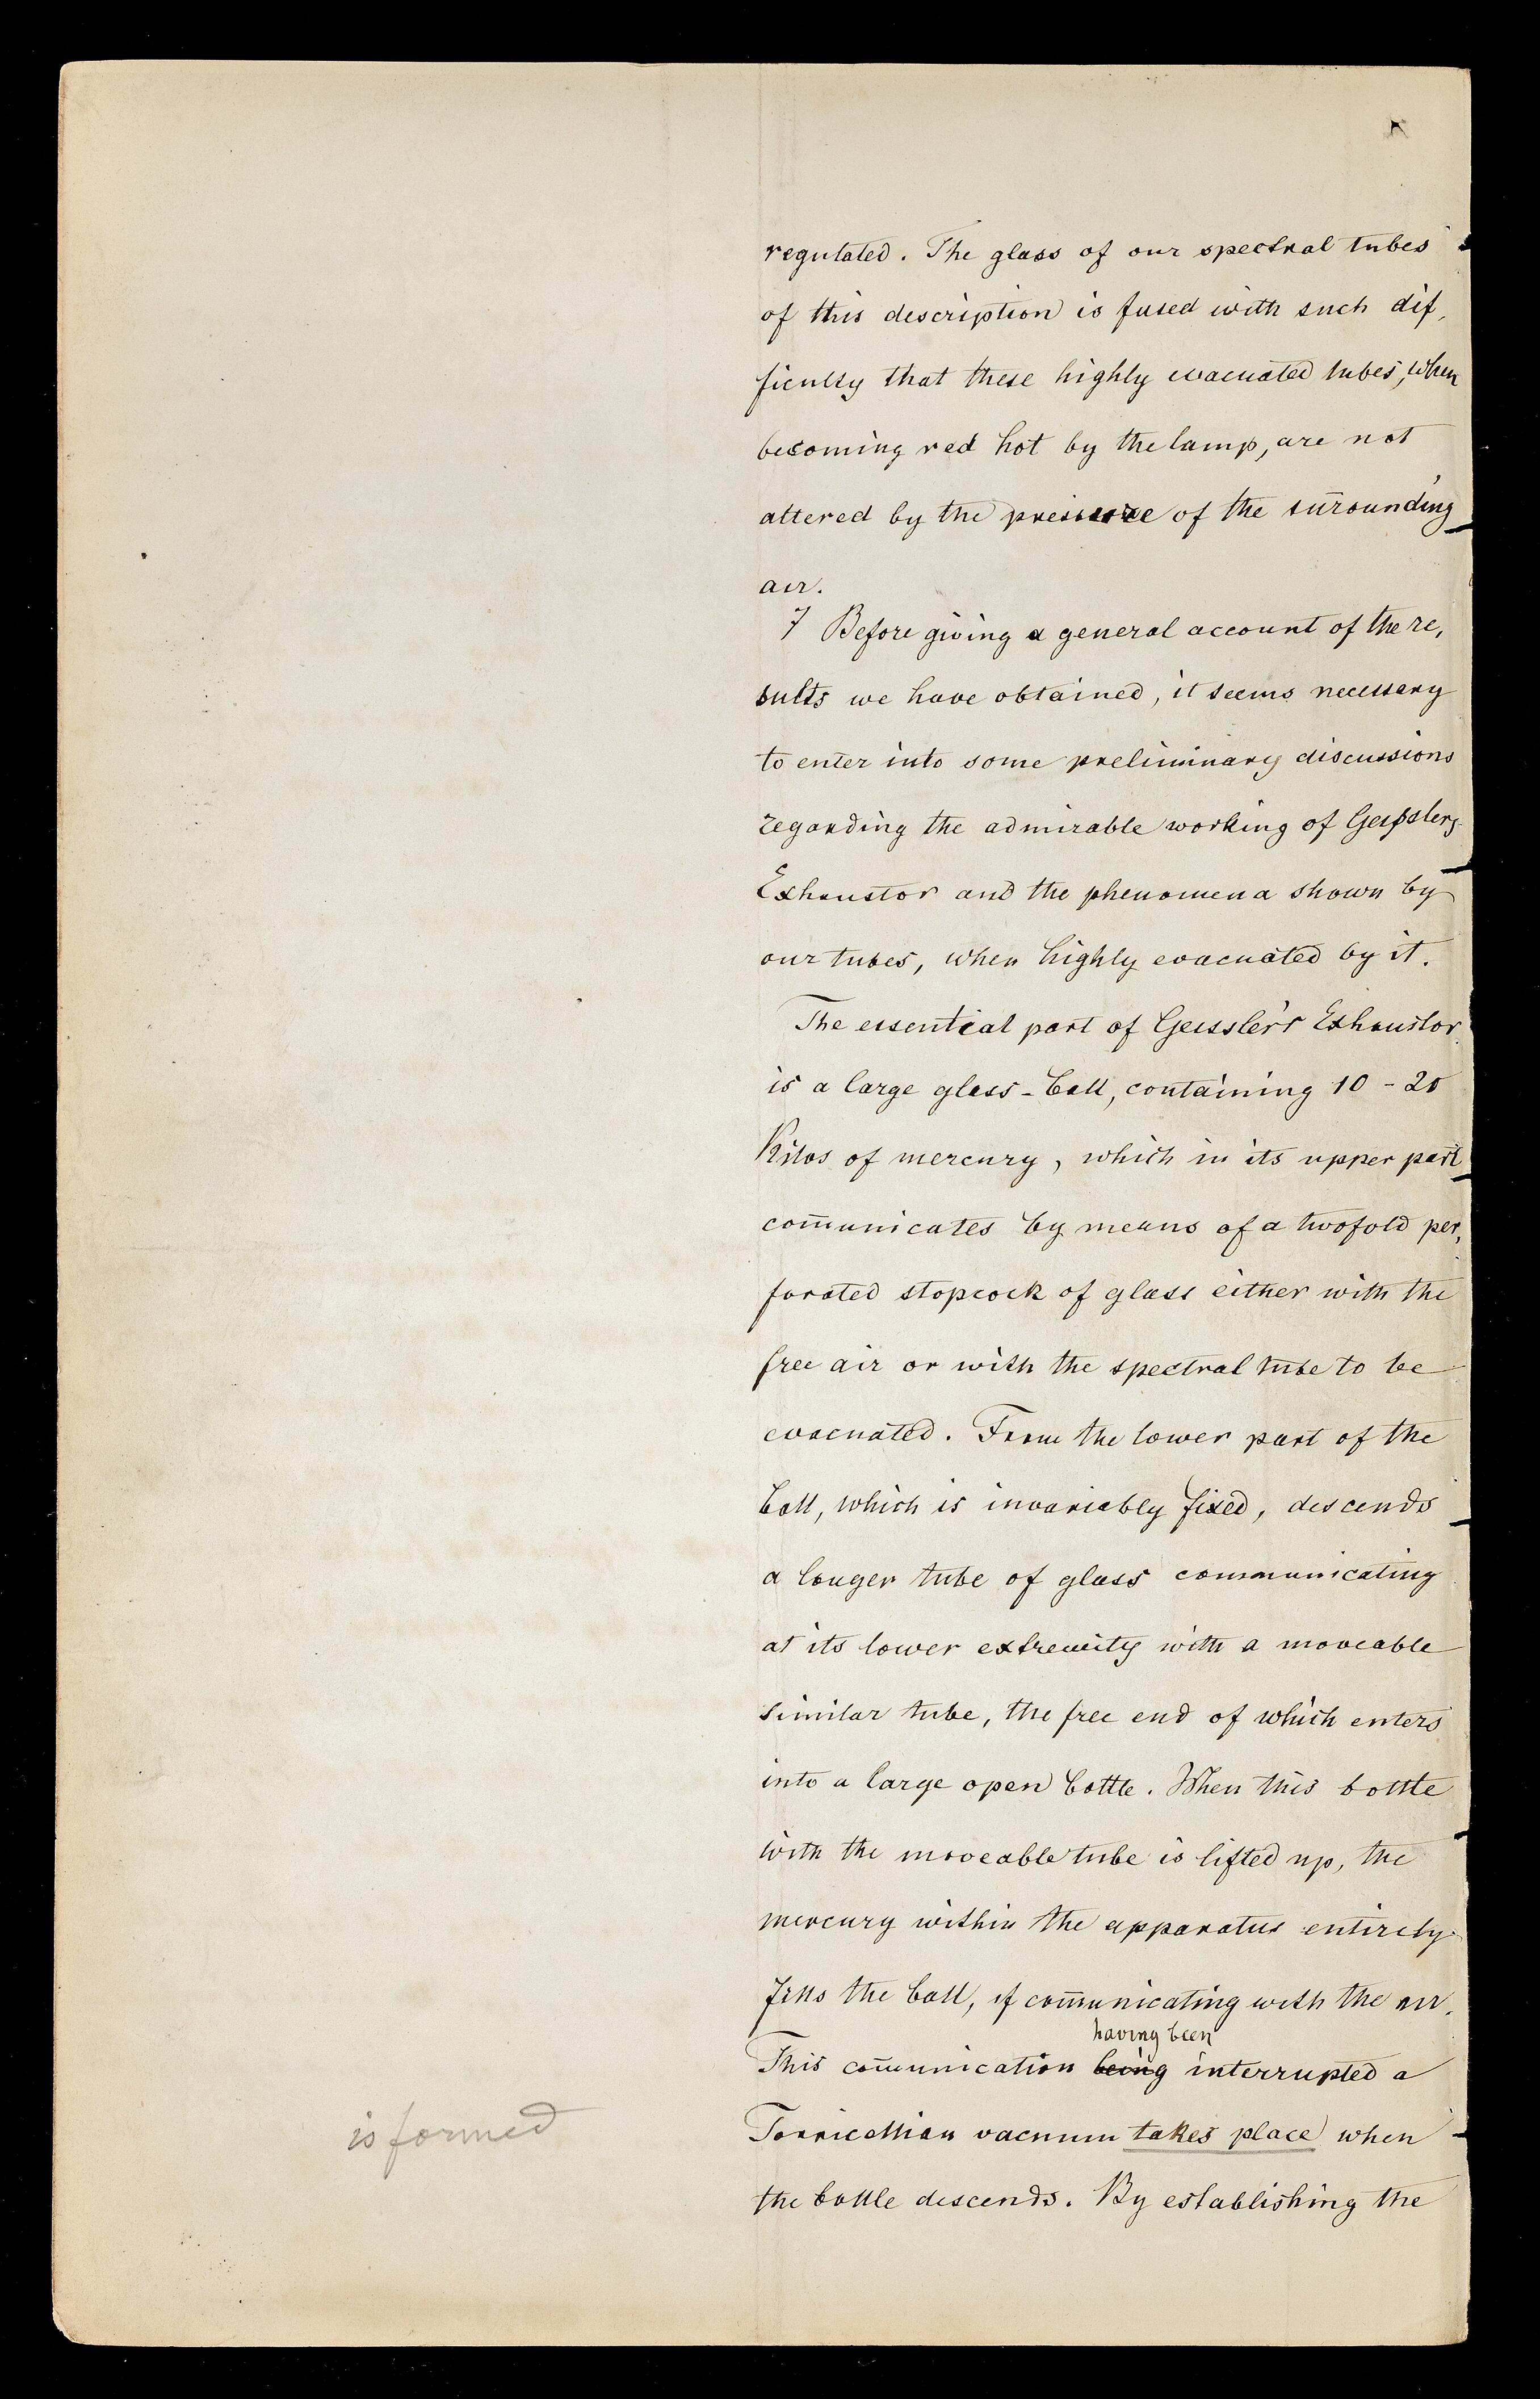 regulated. The glass of our spectral tubes
of this description is fused with such dif,
ficulty that these highly evacuated tubes, when
becoming red hot by the lamp, are not
altered by the pressure of the surounding
air.
7 Before giving a general account of the re,
sults we have obtained, it seems necessary
to enter into some preliminary discussions
regarding the admirable working of Geissler's
Exhaustor and the phenomena shown by
our tubes, when highly evacuated by it.
The essential part of Geissler's Exhaustor
is a large glass-ball, containing 10 - 20
Kilos of mercury, which in its upper part
com̄unicates by means of a twofold per,
forated stopcock of glass either with the
free air or with the spectral tube to be
evacuated. From the lower part of the
ball, which is invariably fixed, descends
a longer tube of glass communicating
at its lower extremity with a moveable
similar tube, the free end of which enters
into a large open bottle. When this bottle
with the moveable tube is lifted up, the
mercury within the apparatus entirely
fills the ball, if com̄unicating with the air.
having been
This com̄unication being interrupted a
is formed
Torricellian vacuum takes place when
the bottle descends. By establishing the